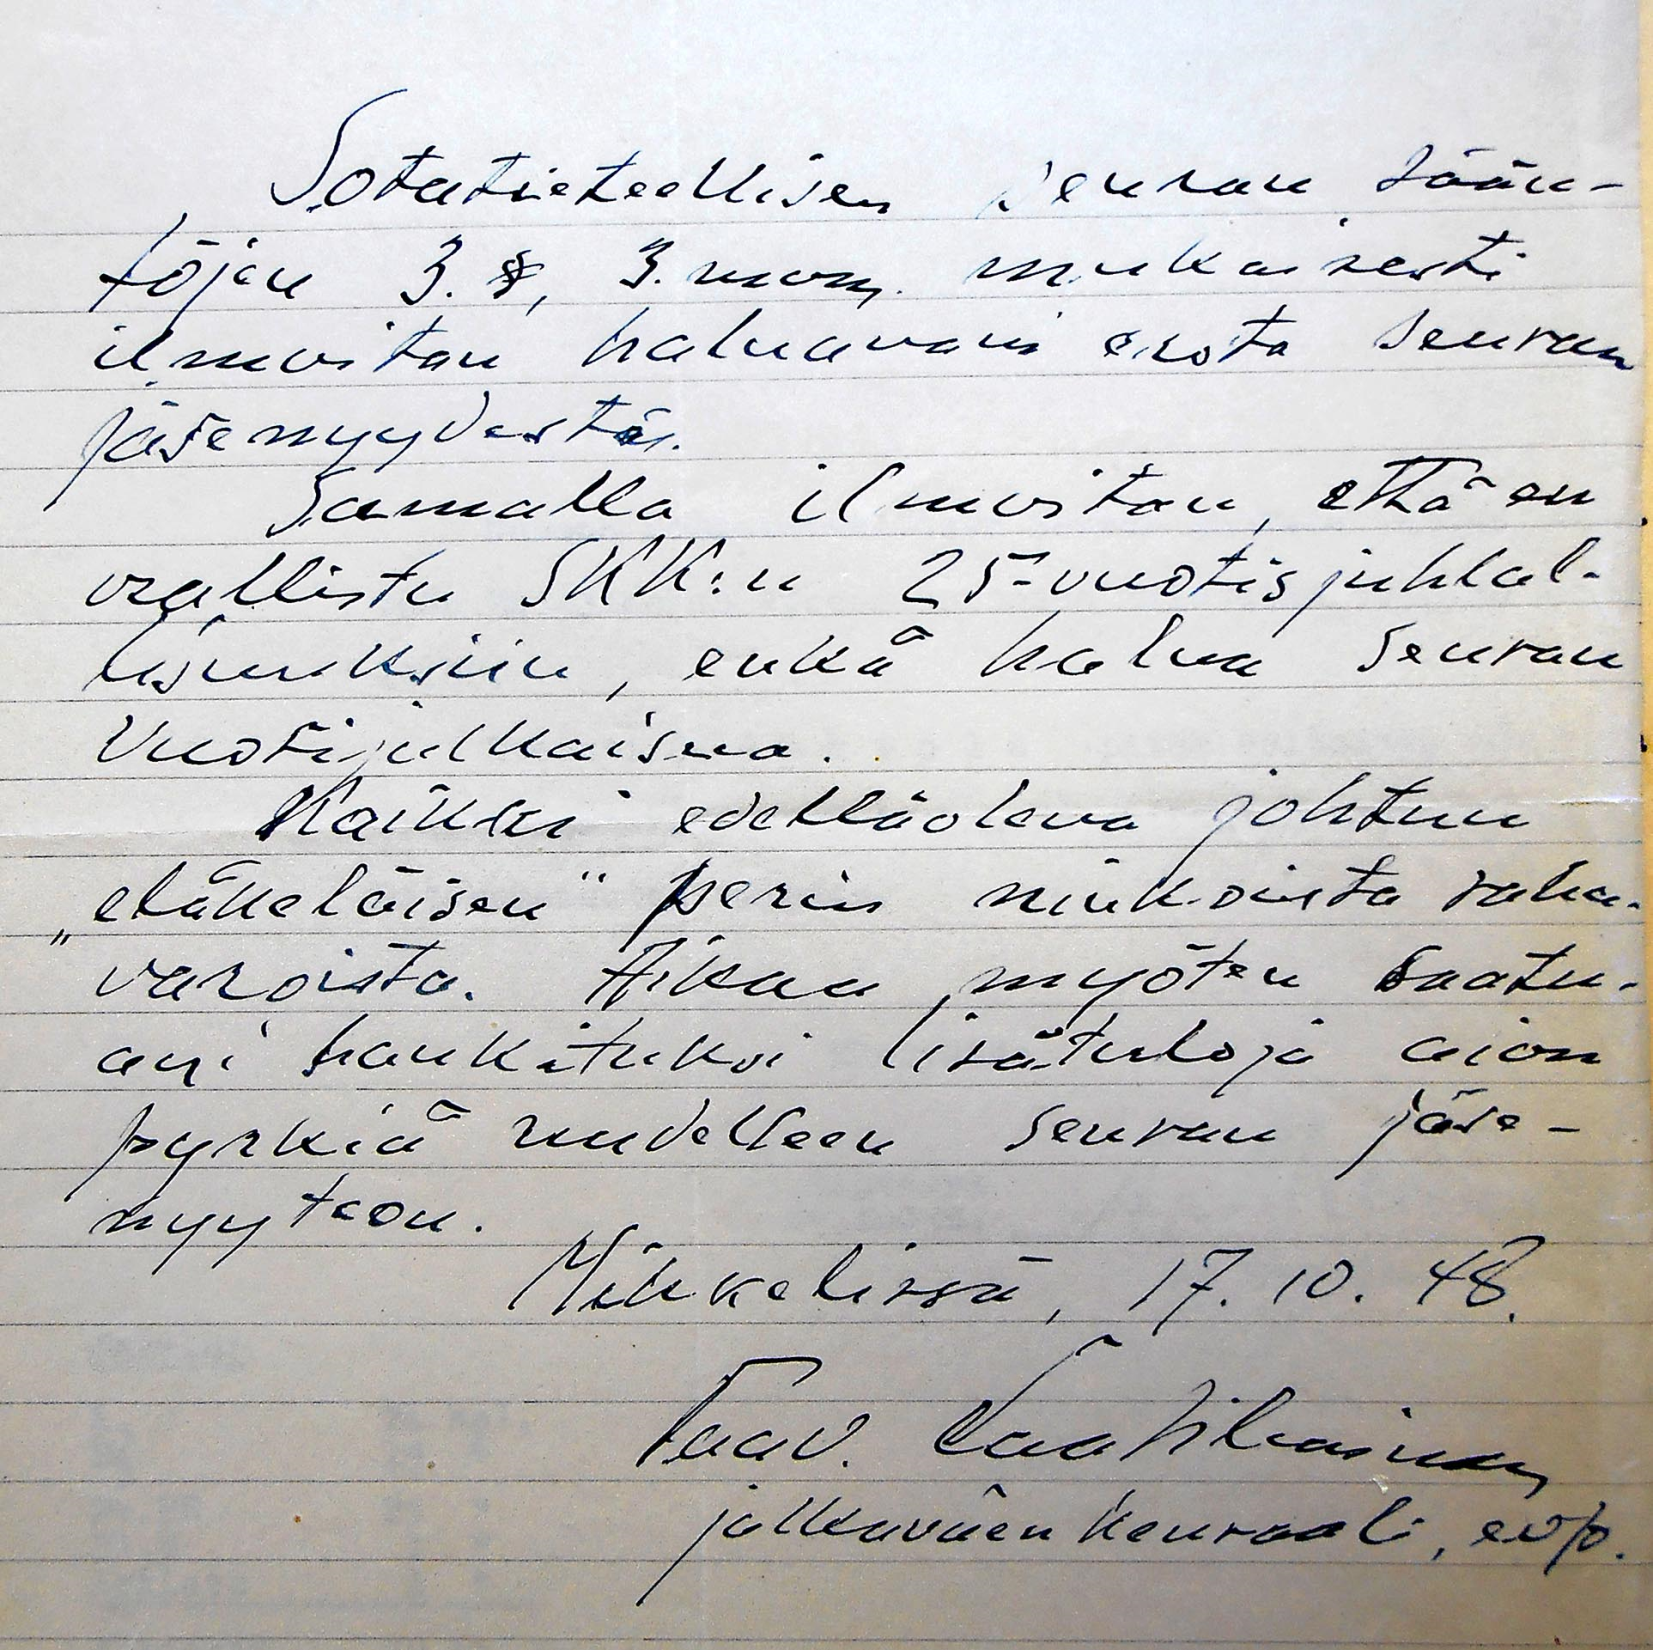 Sotatieteellisen Seuran sään-
töjen 3. §, 3. mom. mukaisesti
ilmoitan haluavani erota Seuran
jäsenyydestä.
Samalla ilmoitan, että en
osallistu SKK:n 25-vuotisjuhlal-
lisuuksiin, enkä halua Seuran
Vuosijulkaisua.
Kaikki edelläoleva johtuu
„eläkeläisen“ perin niukoista raha-
varoista. Aikaa myöten saatu-
ani hankituksi lisätuloja aion
pyrkiä uudelleen Seuran jäse-
nyyteen.
Mikkelissä, 17. 10. 48.
Taav. Laatikainen
jalkaväenkenraali, evp.